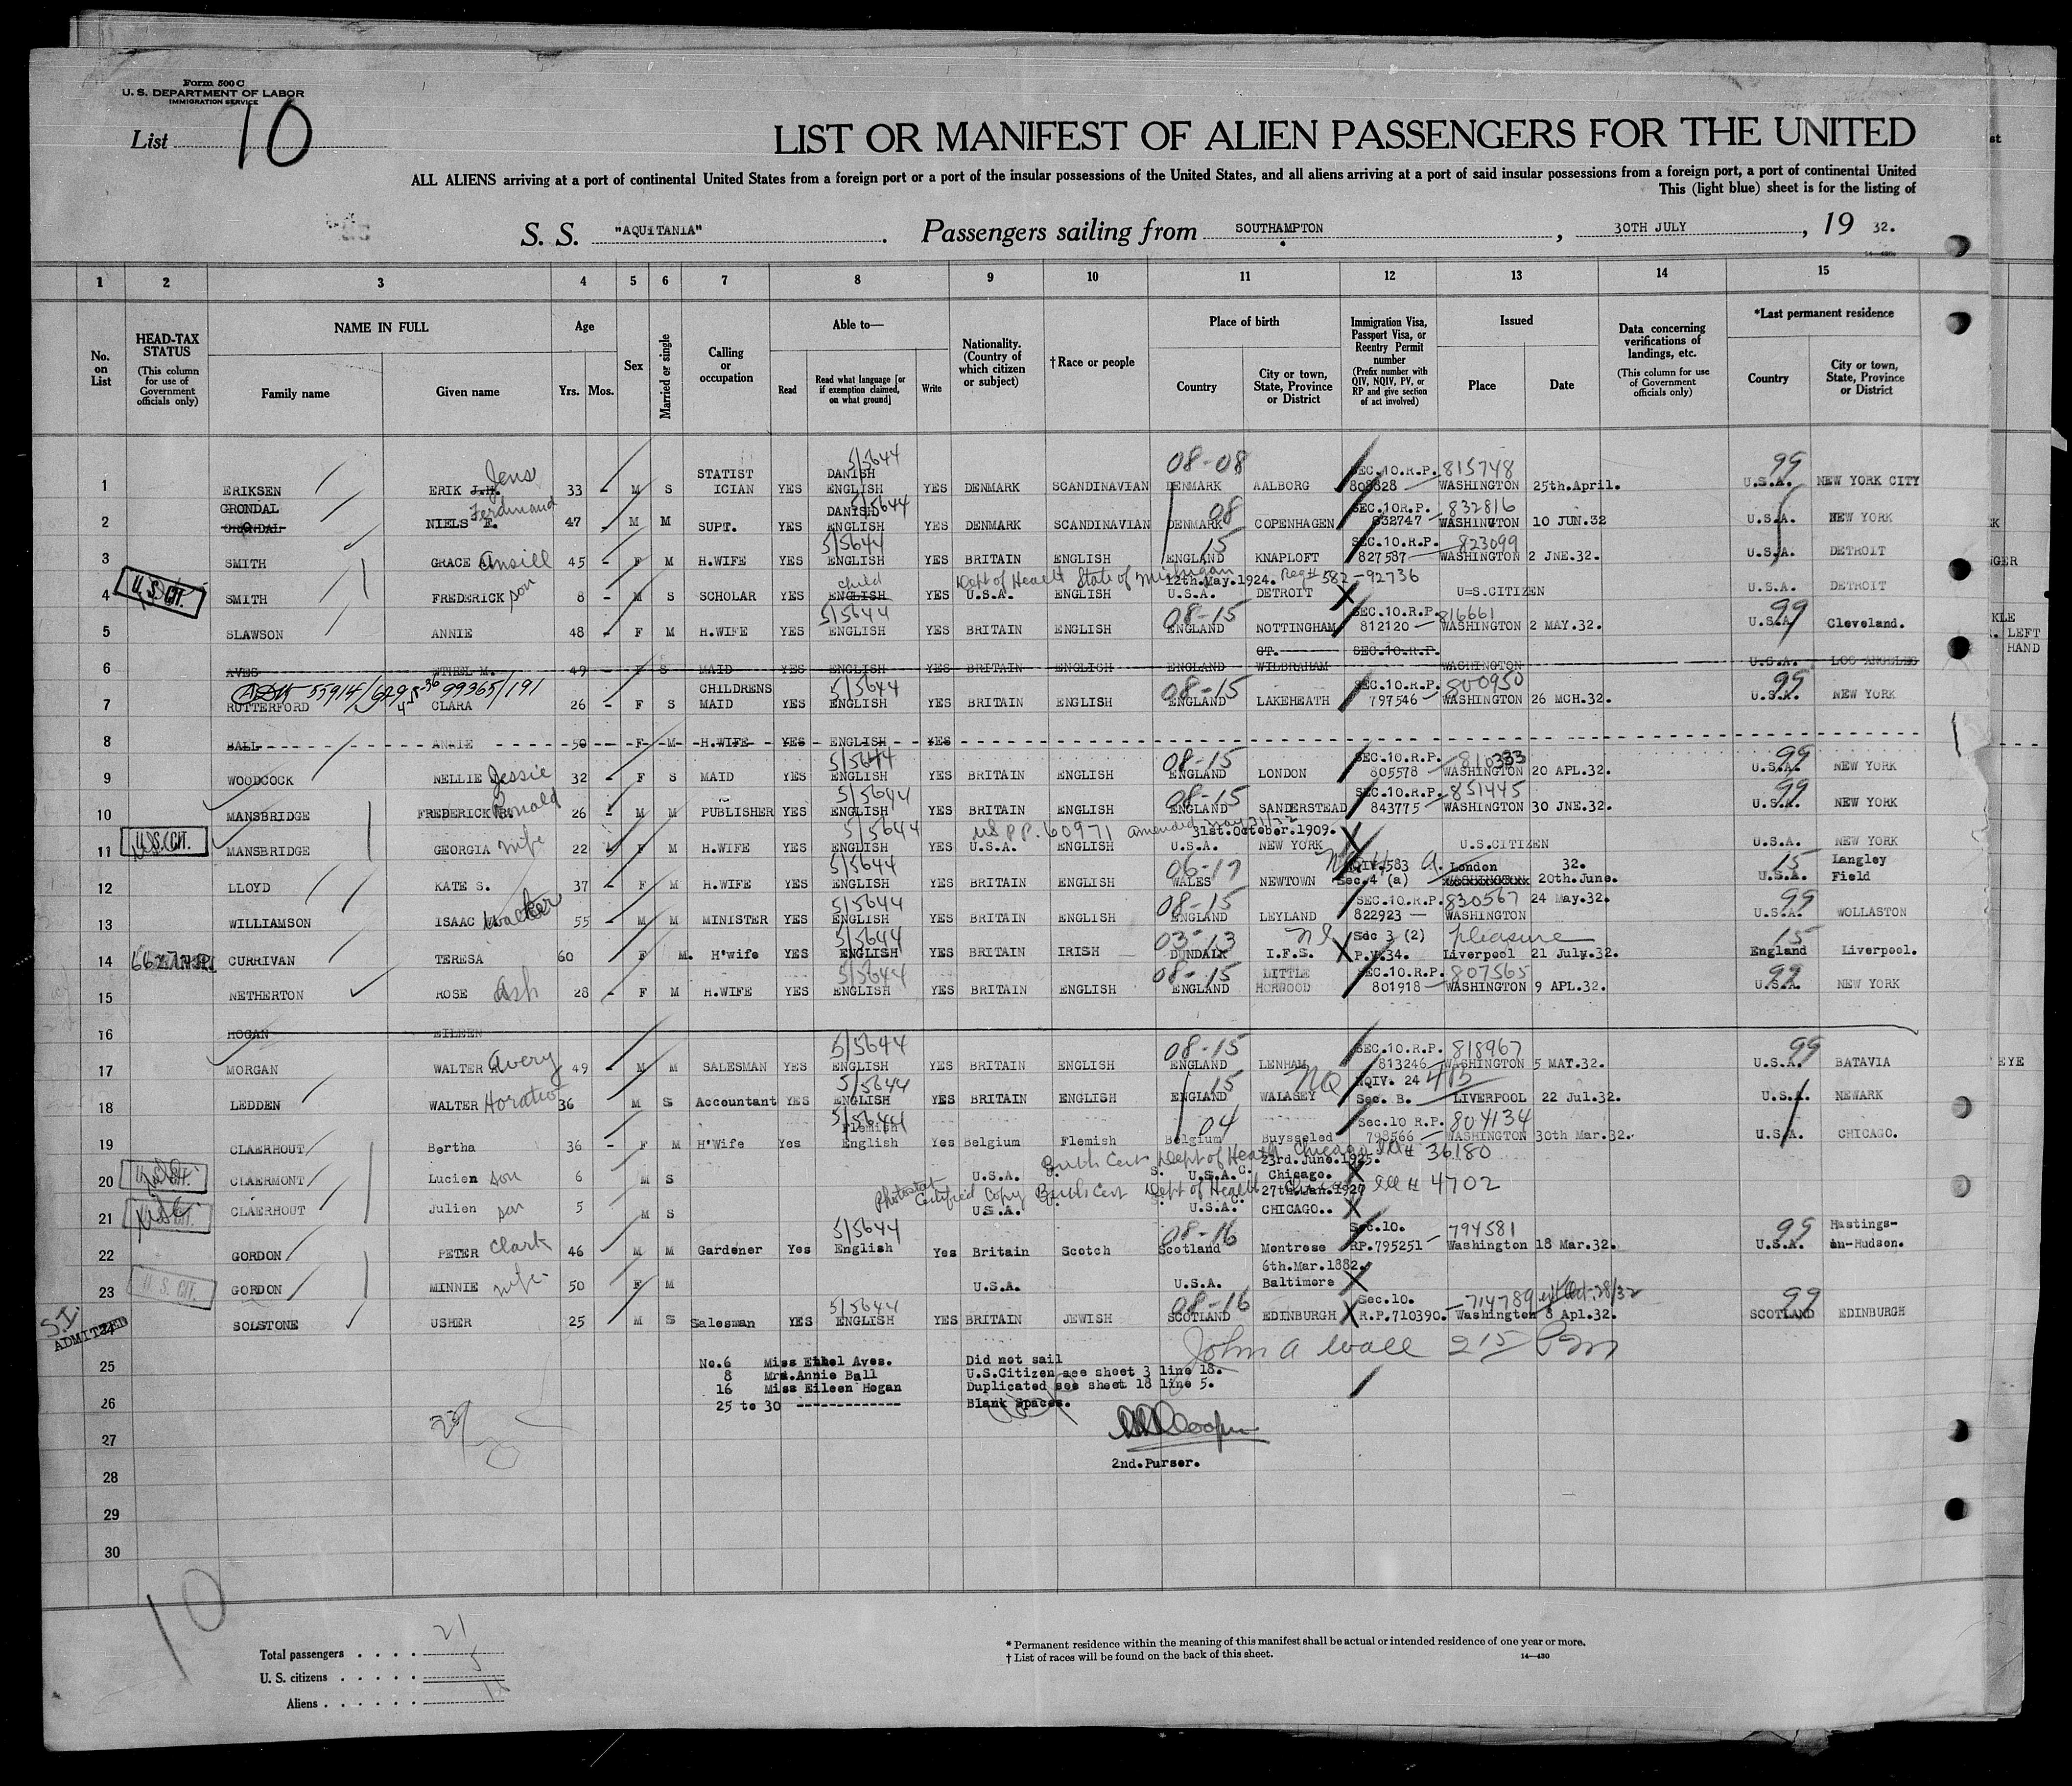 Form 500 C
U. S. DEPARTMENT OF LABOR
IMMIGRATION SERVICE
List 10
LIST OR MANIFEST OF ALIEN PASSENGERS FOR THE UNITED
ALL ALIENS arriving at a port of continental United States from a foreign port or a port of the insular possessions of the United States, and all aliens arriving at a port of said insular possessions from a foreign port, a port of continental United
This (light blue) sheet is for the listing of
S. S. "AQUITANIA" . Passengers sailing from SOUTHAMPTON , 30TH JULY , 19 32.
1 2 3 4 5 6 7 8 9 10 11 12 13 14 15
No. on List
HEAD-TAX STATUS (This column for use of Government officials only)
NAME IN FULL Family name Given name
Age Yrs. Mos.
Sex
Married or single
Calling or occupation
Able to— Read Read what language [or if exemption claimed, on what ground] Write
Nationality. (Country of which citizen or subject)
†Race or people
Place of birth Country City or town, State, Province or District
Immigration Visa, Passport Visa, or Reentry Permit number (Prefix number with QIV, NQIV, PV, or RP and give section of act involved)
Issued Place Date
Data concerning verifications of landings, etc. (This column for use of Government officials only)
*Last permanent residence Country City or town, State, Province or District
Jens STATIST 5/5644 DANISH 08-08 SEC.10.R.P. 815748 99
1 ERIKSEN ERIK J.H. 33 - M S ICIAN YES ENGLISH YES DENMARK SCANDINAVIAN DENMARK AALBORG 808828 WASHINGTON 25th.April. U.S.A. NEW YORK CITY
GRONDAL Ferdinand DANISH 5/5644 08 SEC.10R.P. 832816
2 NIELS F. 47 - M M SUPT. YES ENGLISH YES DENMARK SCANDINAVIAN DENMARK COPENHAGEN 832747 WASHINGTON 10 JUN.32 U.S.A. NEW YORK
5/5644 15 SEC.10.R.P. 823099
3 SMITH GRACE Ansill 45 - F M H.WIFE YES ENGLISH YES BRITAIN ENGLISH ENGLAND KNAPLOFT 827587 WASHINGTON 2 JNE.32. U.S.A. DETROIT
U.S. CIT. child Dept of Health State of Michigan 12th.May.1924. Reg# 582-92736
4 SMITH FREDERICK son 8 - M S SCHOLAR YES ENGLISH YES U.S.A. ENGLISH U.S.A. DETROIT X U=S.CITIZEN U.S.A. DETROIT
5/5644 08-15 SEC.10.R.P. 816661 99
5 SLAWSON ANNIE 48 - F M H.WIFE YES ENGLISH YES BRITAIN ENGLISH ENGLAND NOTTINGHAM 812120 WASHINGTON 2 MAY.32. U.S.A. Cleveland.
GT. SEC.10.R.P.
6 AVES ETHEL M. 49 - F S MAID YES ENGLISH YES BRITAIN ENGLISH ENGLAND WILBRAHAM WASHINGTON U.S.A. LOS ANGELES
55914/629 99365/191 CHILDRENS 5/5644 08-15 SEC.10.R.P. 800950 99
7 RUTTERFORD CLARA 26 - F S MAID YES ENGLISH YES BRITAIN ENGLISH ENGLAND LAKEHEATH 797546 WASHINGTON 26 MCH.32. U.S.A. NEW YORK
8 BALL ANNIE 50 - F M H.WIFE YES ENGLISH YES
5/5644 08-15 SEC.10.R.P. 810333 99
9 WOODCOCK NELLIE Jessie 32 - F S MAID YES ENGLISH YES BRITAIN ENGLISH ENGLAND LONDON 805578 WASHINGTON 20 APL.32. U.S.A. NEW YORK
5/5644 08-15 SEC.10.R.P. 851445 99
10 MANSBRIDGE FREDERICK R. Ronald 26 - M M PUBLISHER YES ENGLISH YES BRITAIN ENGLISH ENGLAND SANDERSTEAD 843775 WASHINGTON 30 JNE.32. U.S.A. NEW YORK
U.S. CIT. 5/5644 US PP. 60971 amended 31st.October.1909.
11 MANSBRIDGE GEORGIA wife 22 F M H.WIFE YES ENGLISH YES U.S.A. ENGLISH U.S.A. NEW YORK X U.S.CITIZEN U.S.A. NEW YORK
5/5644 06-17 NQIV.583 London 32. 15 Langley
12 LLOYD KATE S. 37 - F M H.WIFE YES ENGLISH YES BRITAIN ENGLISH WALES NEWTOWN Sec.4 (a) 20th.June. U.S.A. Field
5/5644 08-15 SEC.10.R.P. 830567 24 May.32. 99
13 WILLIAMSON ISAAC Walker 55 - M M MINISTER YES ENGLISH YES BRITAIN ENGLISH ENGLAND LEYLAND 822923 WASHINGTON U.S.A. WOLLASTON
5/5644 03-13 Sec 3 (2) pleasure 15
14 CURRIVAN TERESA 60 F M. H'wife YES ENGLISH YES BRITAIN IRISH DUNDALK I.F.S. X P.V.34. Liverpool 21 July.32. England Liverpool.
5/5644 08-15 LITTLE SEC.10.R.P. 807565 99
15 NETHERTON ROSE Ash 28 - F M H.WIFE YES ENGLISH YES BRITAIN ENGLISH ENGLAND HORWOOD 801918 WASHINGTON 9 APL.32. U.S.A. NEW YORK
16 HOGAN EILEEN
5/5644 08-15 SEC.10.R.P. 818967 99
17 MORGAN WALTER Avery 49 - M M SALESMAN YES ENGLISH YES BRITAIN ENGLISH ENGLAND LENHAM 813246 WASHINGTON 5 MAY.32. U.S.A. BATAVIA
5/5644 15 NQ NQIV. 24
18 LEDDEN WALTER Horatio 36 M S Accountant YES ENGLISH YES BRITAIN ENGLISH ENGLAND WALASEY Sec. B. LIVERPOOL 22 Jul.32. U.S.A. NEWARK
5/5644 Flemish 04 Sec.10 R.P. 804134
19 CLAERHOUT Bertha 36 - F M H'Wife Yes English Yes Belgium Flemish Belgium Buysseled 798566 WASHINGTON 30th Mar.32. U.S.A. CHICAGO.
U.S. CIT. Birth Cert Dept of Health Chicago 23rd.June.1925. # 36180
20 CLAERMONT Lucien son 6 M S U.S.A. U.S.A. Chicago. X
Photostat Certified Copy Birth Cert Dept of Health 27th.Jan.1927 Ill # 4702
21 CLAERHOUT Julien son 5 M S U.S.A. U.S.A. CHICAGO.. X
5/5644 08-16 Sec.10. 794581 99 Hastings-
22 GORDON PETER Clark 46 M M Gardener Yes English Yes Britain Scotch Scotland Montrose RP.795251 Washington 18 Mar.32. U.S.A. on-Hudson.
U. S. CIT. 6th.Mar.1882.
23 GORDON MINNIE wife 50 F M U.S.A. U.S.A. Baltimore X
S.I. ADMITTED 5/5644 08-16 Sec.10. 714789 ext Oct. 28/32 99
24 SOLSTONE USHER 25 M S Salesman YES ENGLISH YES BRITAIN JEWISH SCOTLAND EDINBURGH X R.P.710390. Washington 8 Apl.32. SCOTLAND EDINBURGH
John A Wall 215 Pm
25 No.6 Miss Ethel Aves. Did not sail
8 Mrs.Annie Ball U.S.Citizen see sheet 3 line 18.
16 Miss Eileen Hogan Duplicated see sheet 18 line 5.
26 25 to 30 ------------- Blank Spaces.
27
2nd.Purser.
28
29
30
10
Total passengers . . . . 21
U. S. citizens . . . . . 5
Aliens . . . . . .
* Permanent residence within the meaning of this manifest shall be actual or intended residence of one year or more.
† List of races will be found on the back of this sheet.
14—430